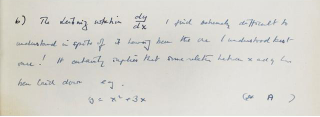 6) The Leibniz notation dy/dx I find extremely difficult to
understand in spite of it having been the one I understood best
once! It certainly implies that some relation between x and y has
been laid down eg.
y = x² + 3x (see A )